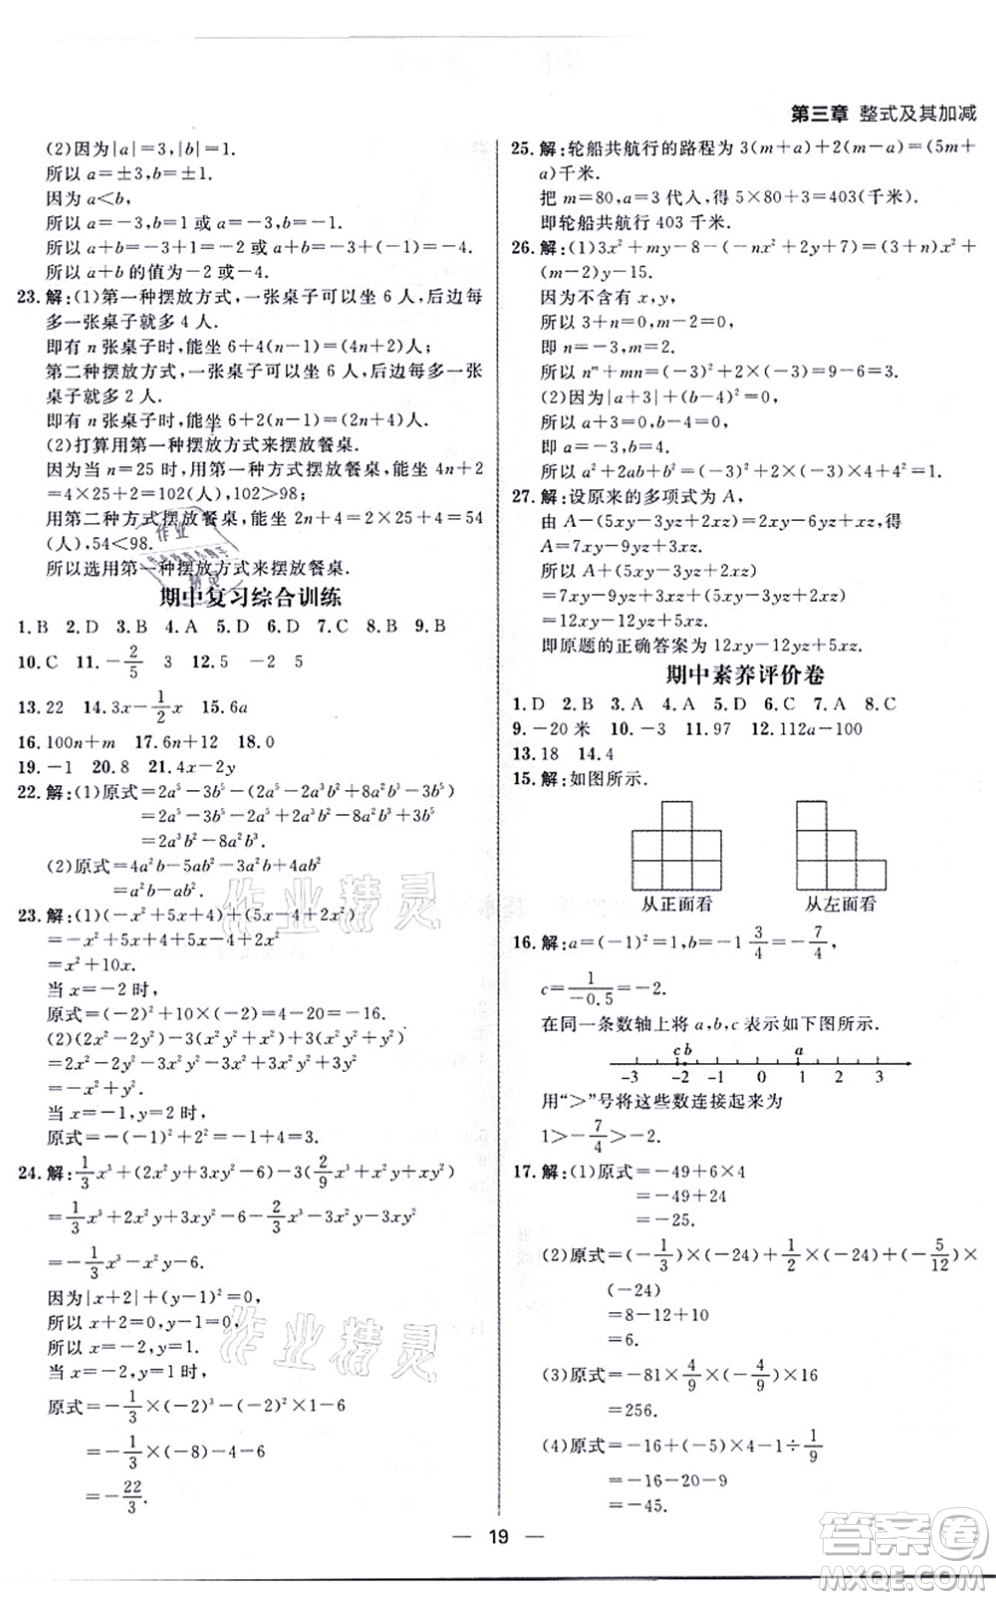 第三章 整式及其加减
(2)因为|a|=3,|b|=1.
所以 a=±3,b=±1.
因为 a<b,
所以 a=-3,b=1 或 a=-3,b=-1.
所以 a+b=-3+1=-2 或 a+b=-3+(-1)=-4.
所以 a+b 的值为-2 或-4.
23.解:(1)第一种摆放方式,一张桌子可以坐 6 人,后边每
多一张桌子就多 4 人.
即有 n 张桌子时,能坐 6+4(n-1)=(4n+2)人;
第二种摆放方式,一张桌子可以坐 6 人,后边每多一张桌
子就多 2 人.
即有 n 张桌子时,能坐 6+2(n-1)=(2n+4)人.
(2)打算用第一种摆放方式来摆放餐桌.
因为当 n=25 时,用第一种方式摆放餐桌,能坐 4n+2
=4×25+2=102(人),102>98;
用第二种方式摆放餐桌,能坐 2n+4=2×25+4=54
(人),54<98.
所以选用第一种摆放方式来摆放餐桌.
期中复习综合训练
1.B 2.D 3.B 4.A 5.D 6.D 7.D 8.B 9.B
10.C 11.-2/5 3 12.5 -2 5
13.22 14.3x-1/2x 15.6a
16.100n+m 17.6n+12 18.0
19.-1 20.8 21.4x-2y
22.解:(1)原式=2a⁵-3b⁵-(2a⁵-2a³b²+8a³b²-3b⁵)
=2a⁵-3b⁵-2a⁵+2a³b²-8a³b²+3b⁵
=2a³b²-8a³b².
(2)原式=4a²b-5ab²-3a²b+4ab²
=a²b-ab².
23.解:(1)(-x²+5x+4)+(5x-4+2x²)
=-x²+4+5x+5x-4+2x²
=x²+10x.
当 x=-2 时,
原式=(-2)²+10×(-2)=4-20=-16.
(2)(2x²-2y²)-3(x²y²+x²)+3(x²y²+y²)
=2x²-2y²-3x²y²-3x²+3x²y²+3y²
=-x²+y².
当 x=-1,y=2 时,
原式=-(-1)²+2²=-1+4=3.
24.解:1/3x³+(2x²y+3xy²-6)-3(2/9x³+x²y+xy²)
=1/3x³+2x²y+3xy²-6-2/3x³-3x²y-3xy²
=-1/3x³-x²y-6.
因为|x+2|+(y-1)²=0,
所以 x+2=0,y-1=0.
所以 x=-2,y=1.
当 x=-2,y=1 时,
原式=-1/3×(-2)³-(-2)²×1-6
=-1/3×(-8)-4-6
=-22/3.
25.解:轮船共航行的路程为 3(m+a)+2(m-a)=(5m+
a)千米.
把 m=80,a=3 代人,得 5×80+3=403(千米).
即轮船共航行 403 千米.
26.解:(1)3x²+my-8-(-nx²+2y+7)=(3+n)x²+
(m-2)y-15.
因为不含有 x,y,
所以 3+n=0,m-2=0.
即 n=-3,m=2.
所以 nᵐ+mn=(-3)²+2×(-3)=9-6=3.
(2)因为|a+3|+(b-4)²=0,
所以 a+3=0,b-4=0.
即 a=-3,b=4.
所以 a²+2ab+b²=(a+b)²=(-3+4)²=1.
27.解:设原来的多项式为 A,
由 A-(5xy-3yz+2xz)=2xy-6yz+xz,得
A=7xy-9yz+3xz.
所以 A+(5xy-3yz+2xz)
=7xy-9yz+3xz+(5xy-3yz+2xz)
=12xy-12yz+5xz.
即原题的正确答案为 12xy-12yz+5xz.
期中素养评价卷
1.D 2.B 3.A 4.A 5.D 6.C 7.A 8.C
9.-20 米 10.-3 11.97 12.112a-100
13.18 14.4
15.解:如图所示.
从正面看 从左面看
16.解:a=(-1)²=1,b=-1 3/4=-7/4,
c=1/-0.5=-2.
在同一条数轴上将 a,b,c 表示如下图所示.
c b a
-3 -2 -1 0 1 2 3
用“>”号将这些数连接起来为
1>-7/4>-2.
17.解:(1)原式=-49+6×4
=-49+24
=-25.
(2)原式=(-1/3)×(-24)+1/2×(-24)+(-5/12)×
(-24)
=8-12+10
=6.
(3)原式=-81×4/9×(-4/9)×16
=256.
(4)原式=-16+(-5)×4-1÷1/9
=-16-20-9
=-45.
19
作业精灵
作业精灵
答案卷
MXQE.COM